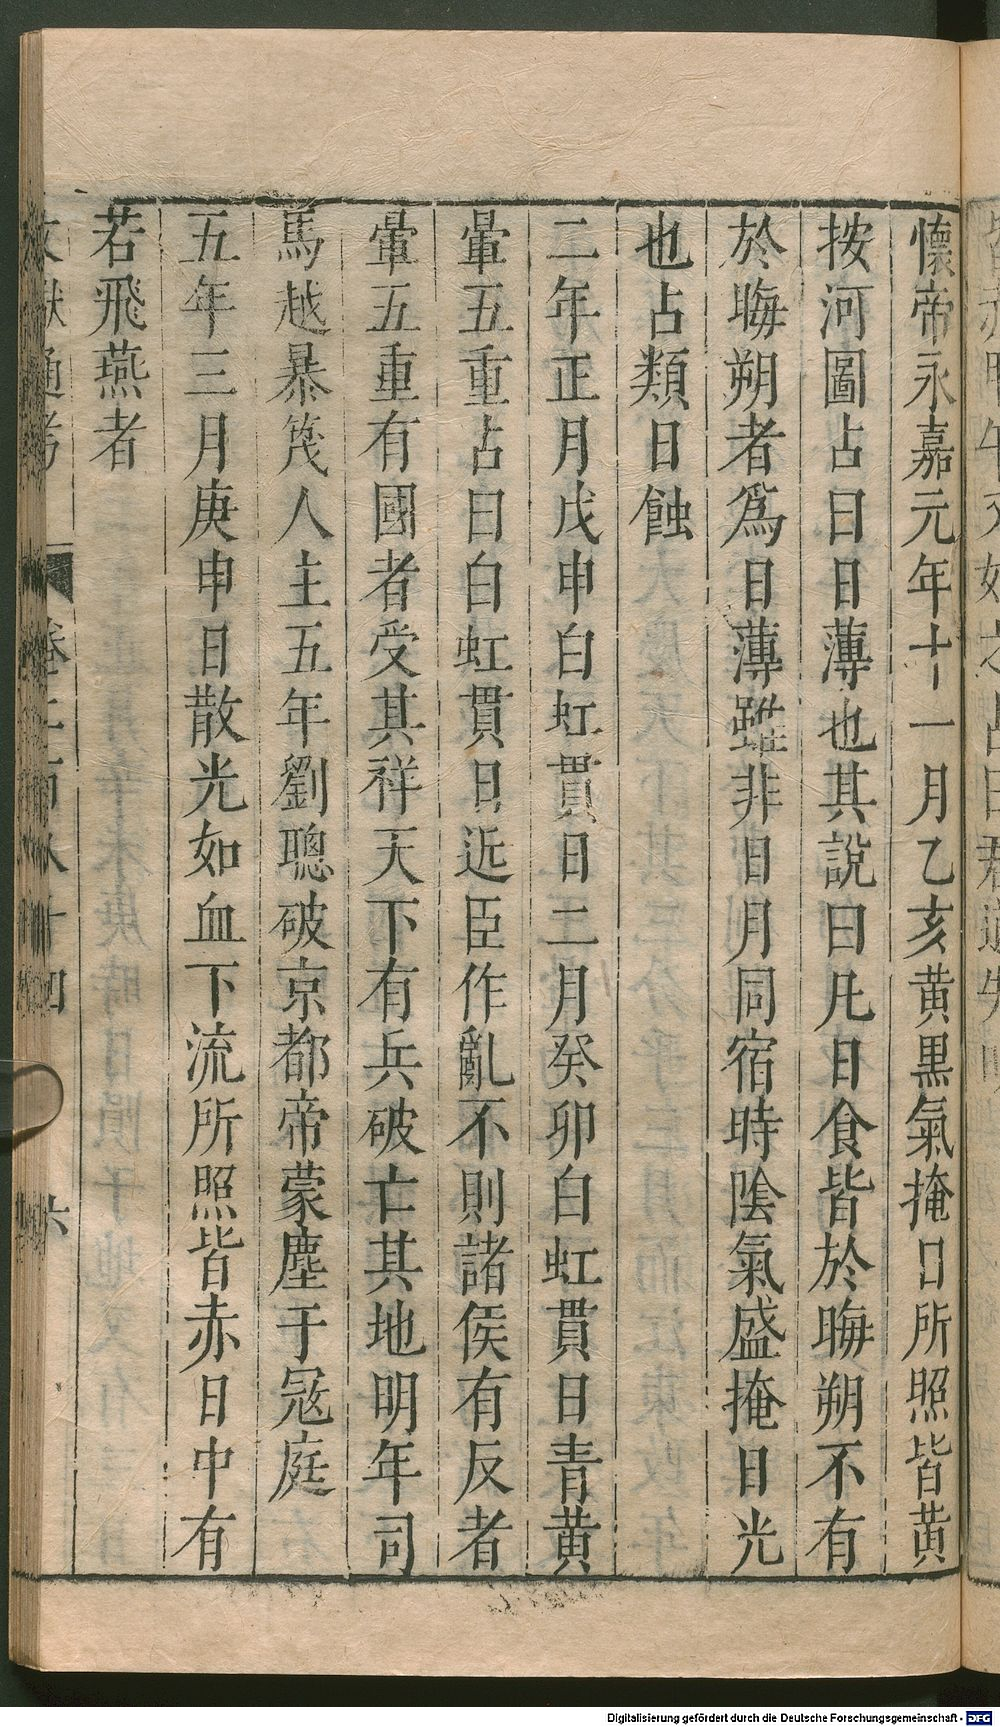 懷帝永嘉元年十一月乙亥黃黑氣掩日所照皆黃
按河圖占曰日薄也其說曰凡日食皆於晦朔不有
於晦朔者爲日薄雖非日月同宿時陰氣盛掩日光
也占類日蝕
二年正月戊申白虹貫日二月癸卯白虹貫日青黃
暈五重占曰白虹貫日近臣作亂不則諸侯有反者
暈五重有國者受其祥天下有兵破亡其地明年司
馬越暴篾人主五年劉聰破京都帝蒙塵于寇庭
五年三月庚申日散光如血下流所照皆赤日中有
若飛燕者
文獻通考 卷二百八十四 六
Digitalisierung gefördert durch die Deutsche Forschungsgemeinschaft - DFG